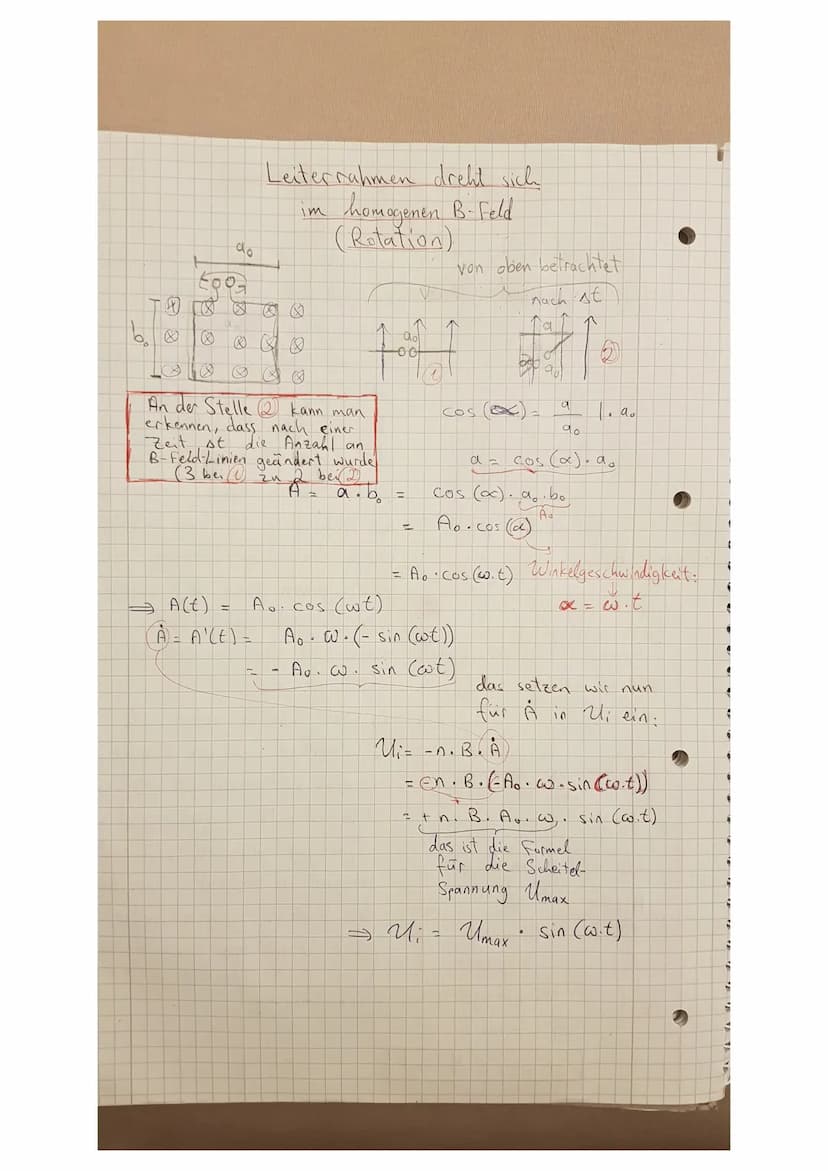 Leiterrahmen dreht sich
im homogenen B-Feld
(Rotation)
a₀
b₀
von oben betrachtet
nach Δt
a₀
①
a
a₀
②
An der Stelle ② kann man
erkennen, dass nach einer
Zeit Δt die Anzahl an
B-Feld-Linien geändert wurde
(3 bei ① zu 2 bei ②)
cos(α) = a/a₀ |· a₀
a = cos(α) · a₀
A = a · b₀ = cos(α) · a₀ · b₀
A₀
= A₀ · cos(α)
= A₀ · cos(ω·t)
Winkelgeschwindigkeit:
α = ω · t
⇒ A(t) = A₀ · cos(ωt)
Ȧ = A'(t) = A₀ · ω · (- sin(ωt))
= - A₀ · ω · sin(ωt)
das setzen wir nun
für Ȧ in Ui ein:
Ui = -n · B · Ȧ
= -n · B · (-A₀ · ω · sin(ω·t))
= + n · B · A₀ · ω · sin(ω·t)
das ist die Formel
für die Scheitel-
Spannung Umax
⇒ Ui = Umax · sin(ω·t)